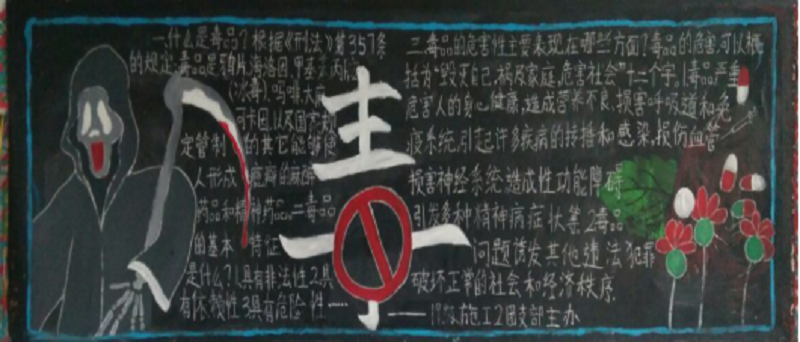 一.什么是毒品?根据《刑法》第357条
的规定,毒品是鸦片,海洛因,甲基苯丙胺
(冰毒),吗啡,大麻,
可卡因以及国家规
定管制的其它能够使
人形成瘾癖的麻醉
药品和精神药品。二毒品
的基本特征
是什么?1.具有非法性.2.具
有依赖性.3.具有危险性……
毒
三.毒品的危害性主要表现在哪些方面?毒品的危害,可以概
括为“毁灭自己,祸及家庭,危害社会”十二个字。1毒品严重
危害人的身心健康,造成营养不良,损害呼吸道和免
疫系统,引起许多疾病的转播和感染,损伤血管
损害神经系统,造成性功能障碍
引发多种精神病症状等.2毒品
问题诱发其他违法犯罪
破坏正常的社会和经济秩序.
施工2团支部主办